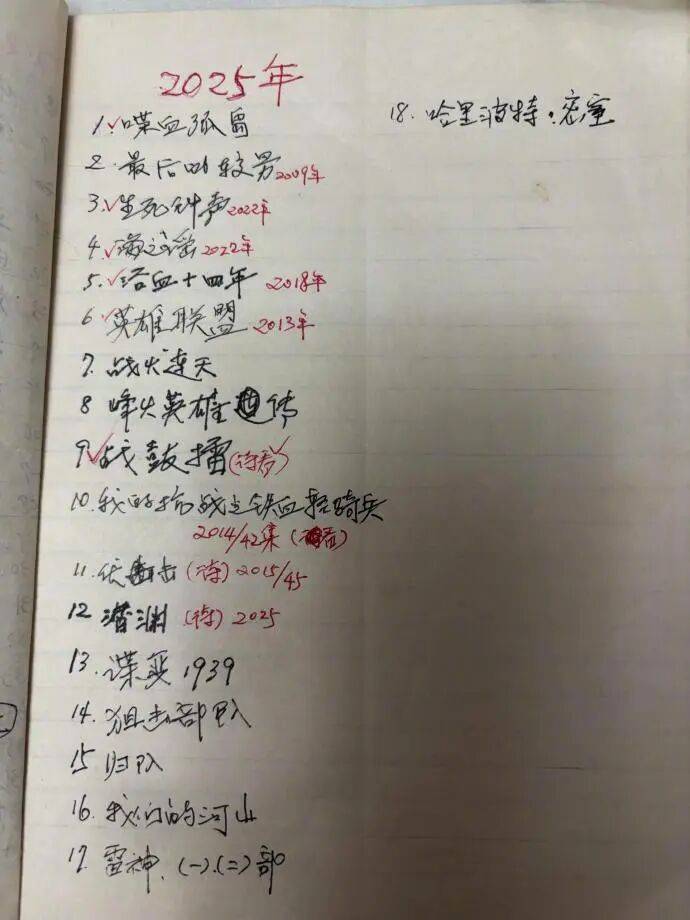 2025年
1.✓喋血孤岛
2.最后的较男 2009年
3.✓生死钟声 2022年
4.✓海之谣 2022年
5.✓浴血十四年 2018年
6.✓英雄联盟 2013年
7.战火连天
8 烽火英雄传
9.✓战鼓擂(待看)✓
10.我的抗战之铁血轻骑兵
2014/42集(待看)
11.伏击(待)2015/45
12 潜渊(待)2025
13.谍变1939
14.狙击部队
15 归队
16.我们的河山
17.雷神.(一).(二)部
18.哈里波特·密室